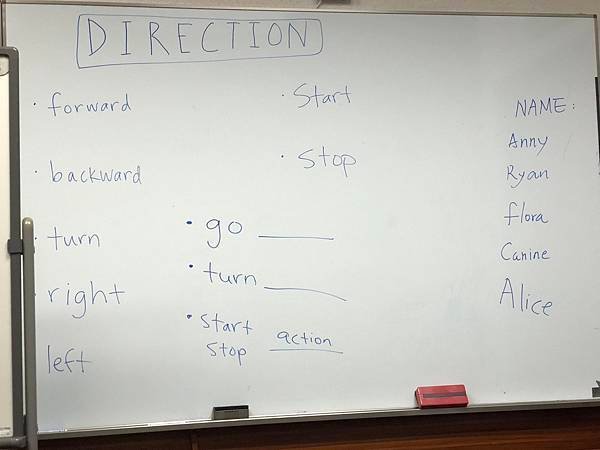 DIRECTION
· forward
· backward
· turn
· right
left
· Start
· Stop
• go ____
• turn ____
• start
stop action
NAME:
Anny
Ryan
flora
Canine
Alice